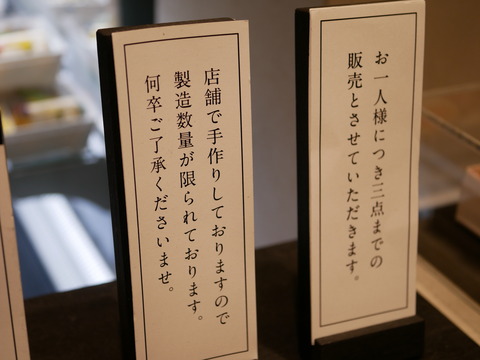 お一人様につき三点までの
販売とさせていただきます。
店舗で手作りしておりますので
製造数量が限られております。
何卒ご了承くださいませ。